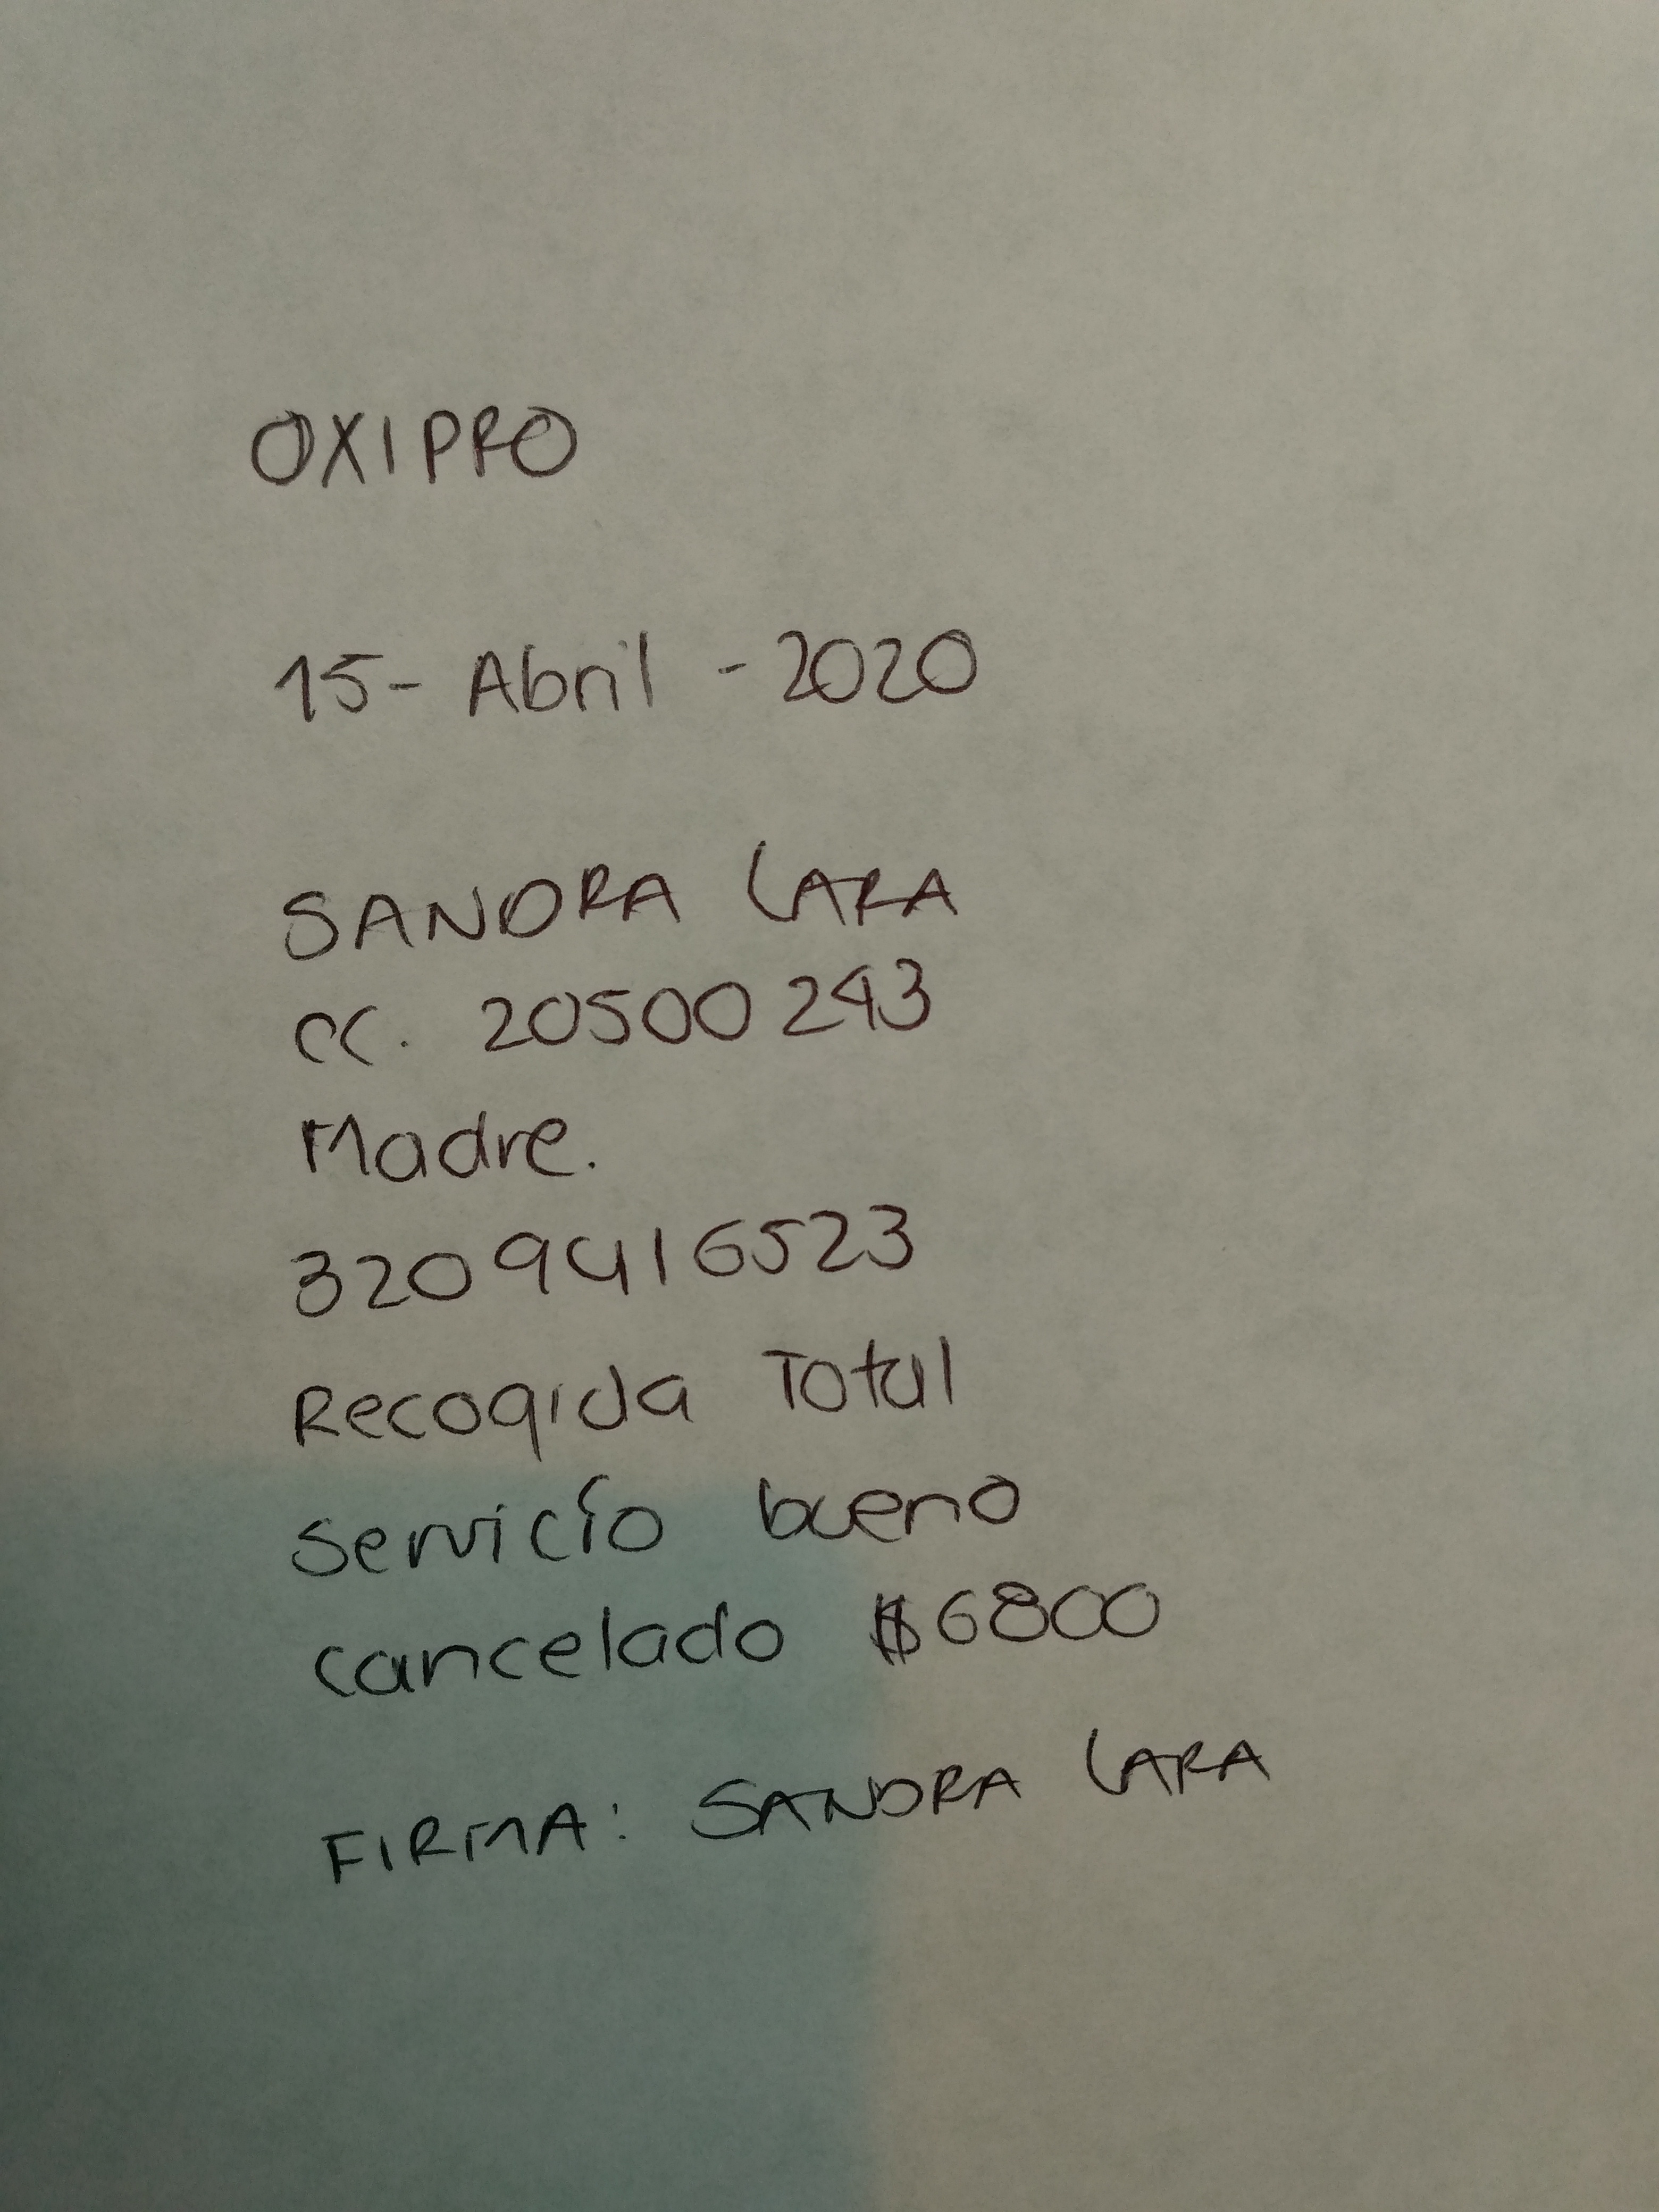 OXIPRO
15- Abril - 2020
SANDRA LARA
CC. 20500 243
Madre.
320 9416523
Recogida Total
Servicio bueno
cancelado $6800
FIRMA: SANDRA LARA